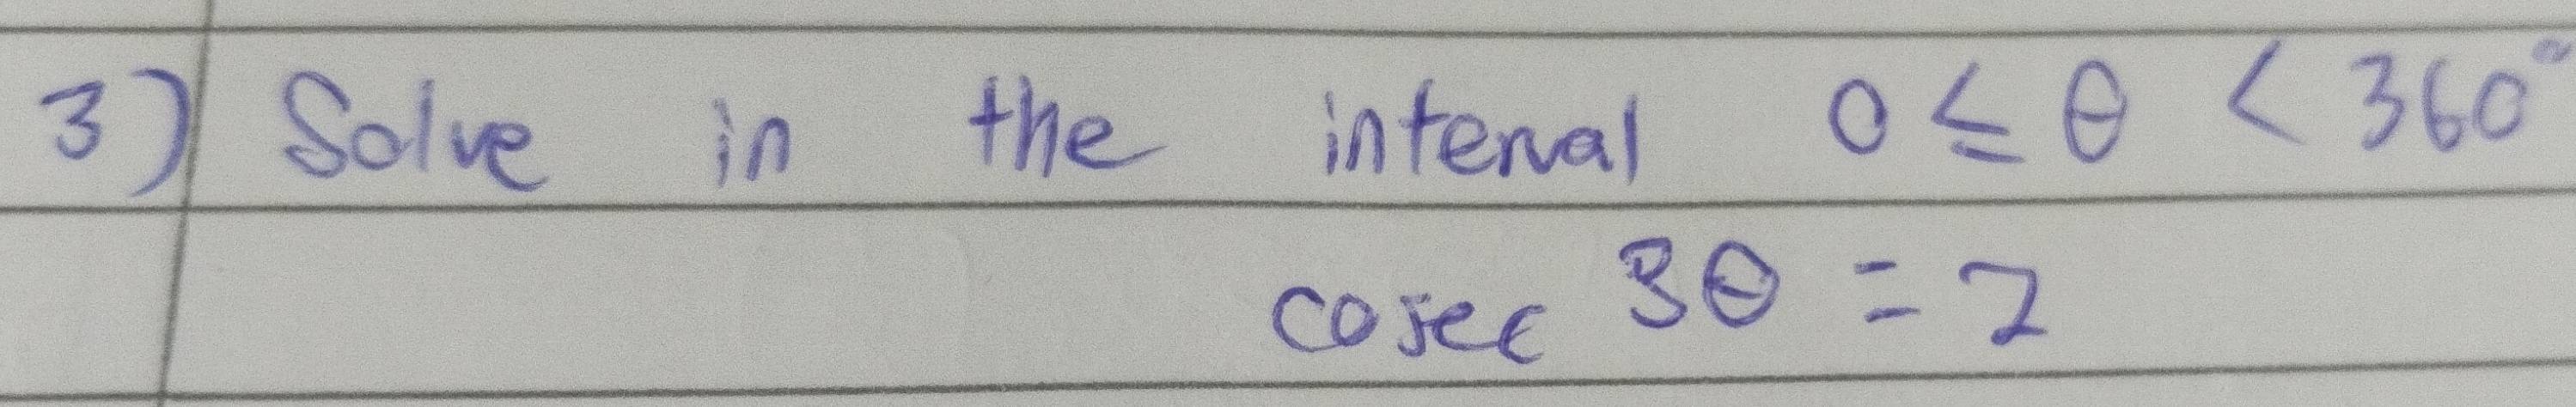 3) Solve in the interval 0 ≤ θ < 360°
cosec 3θ = 2